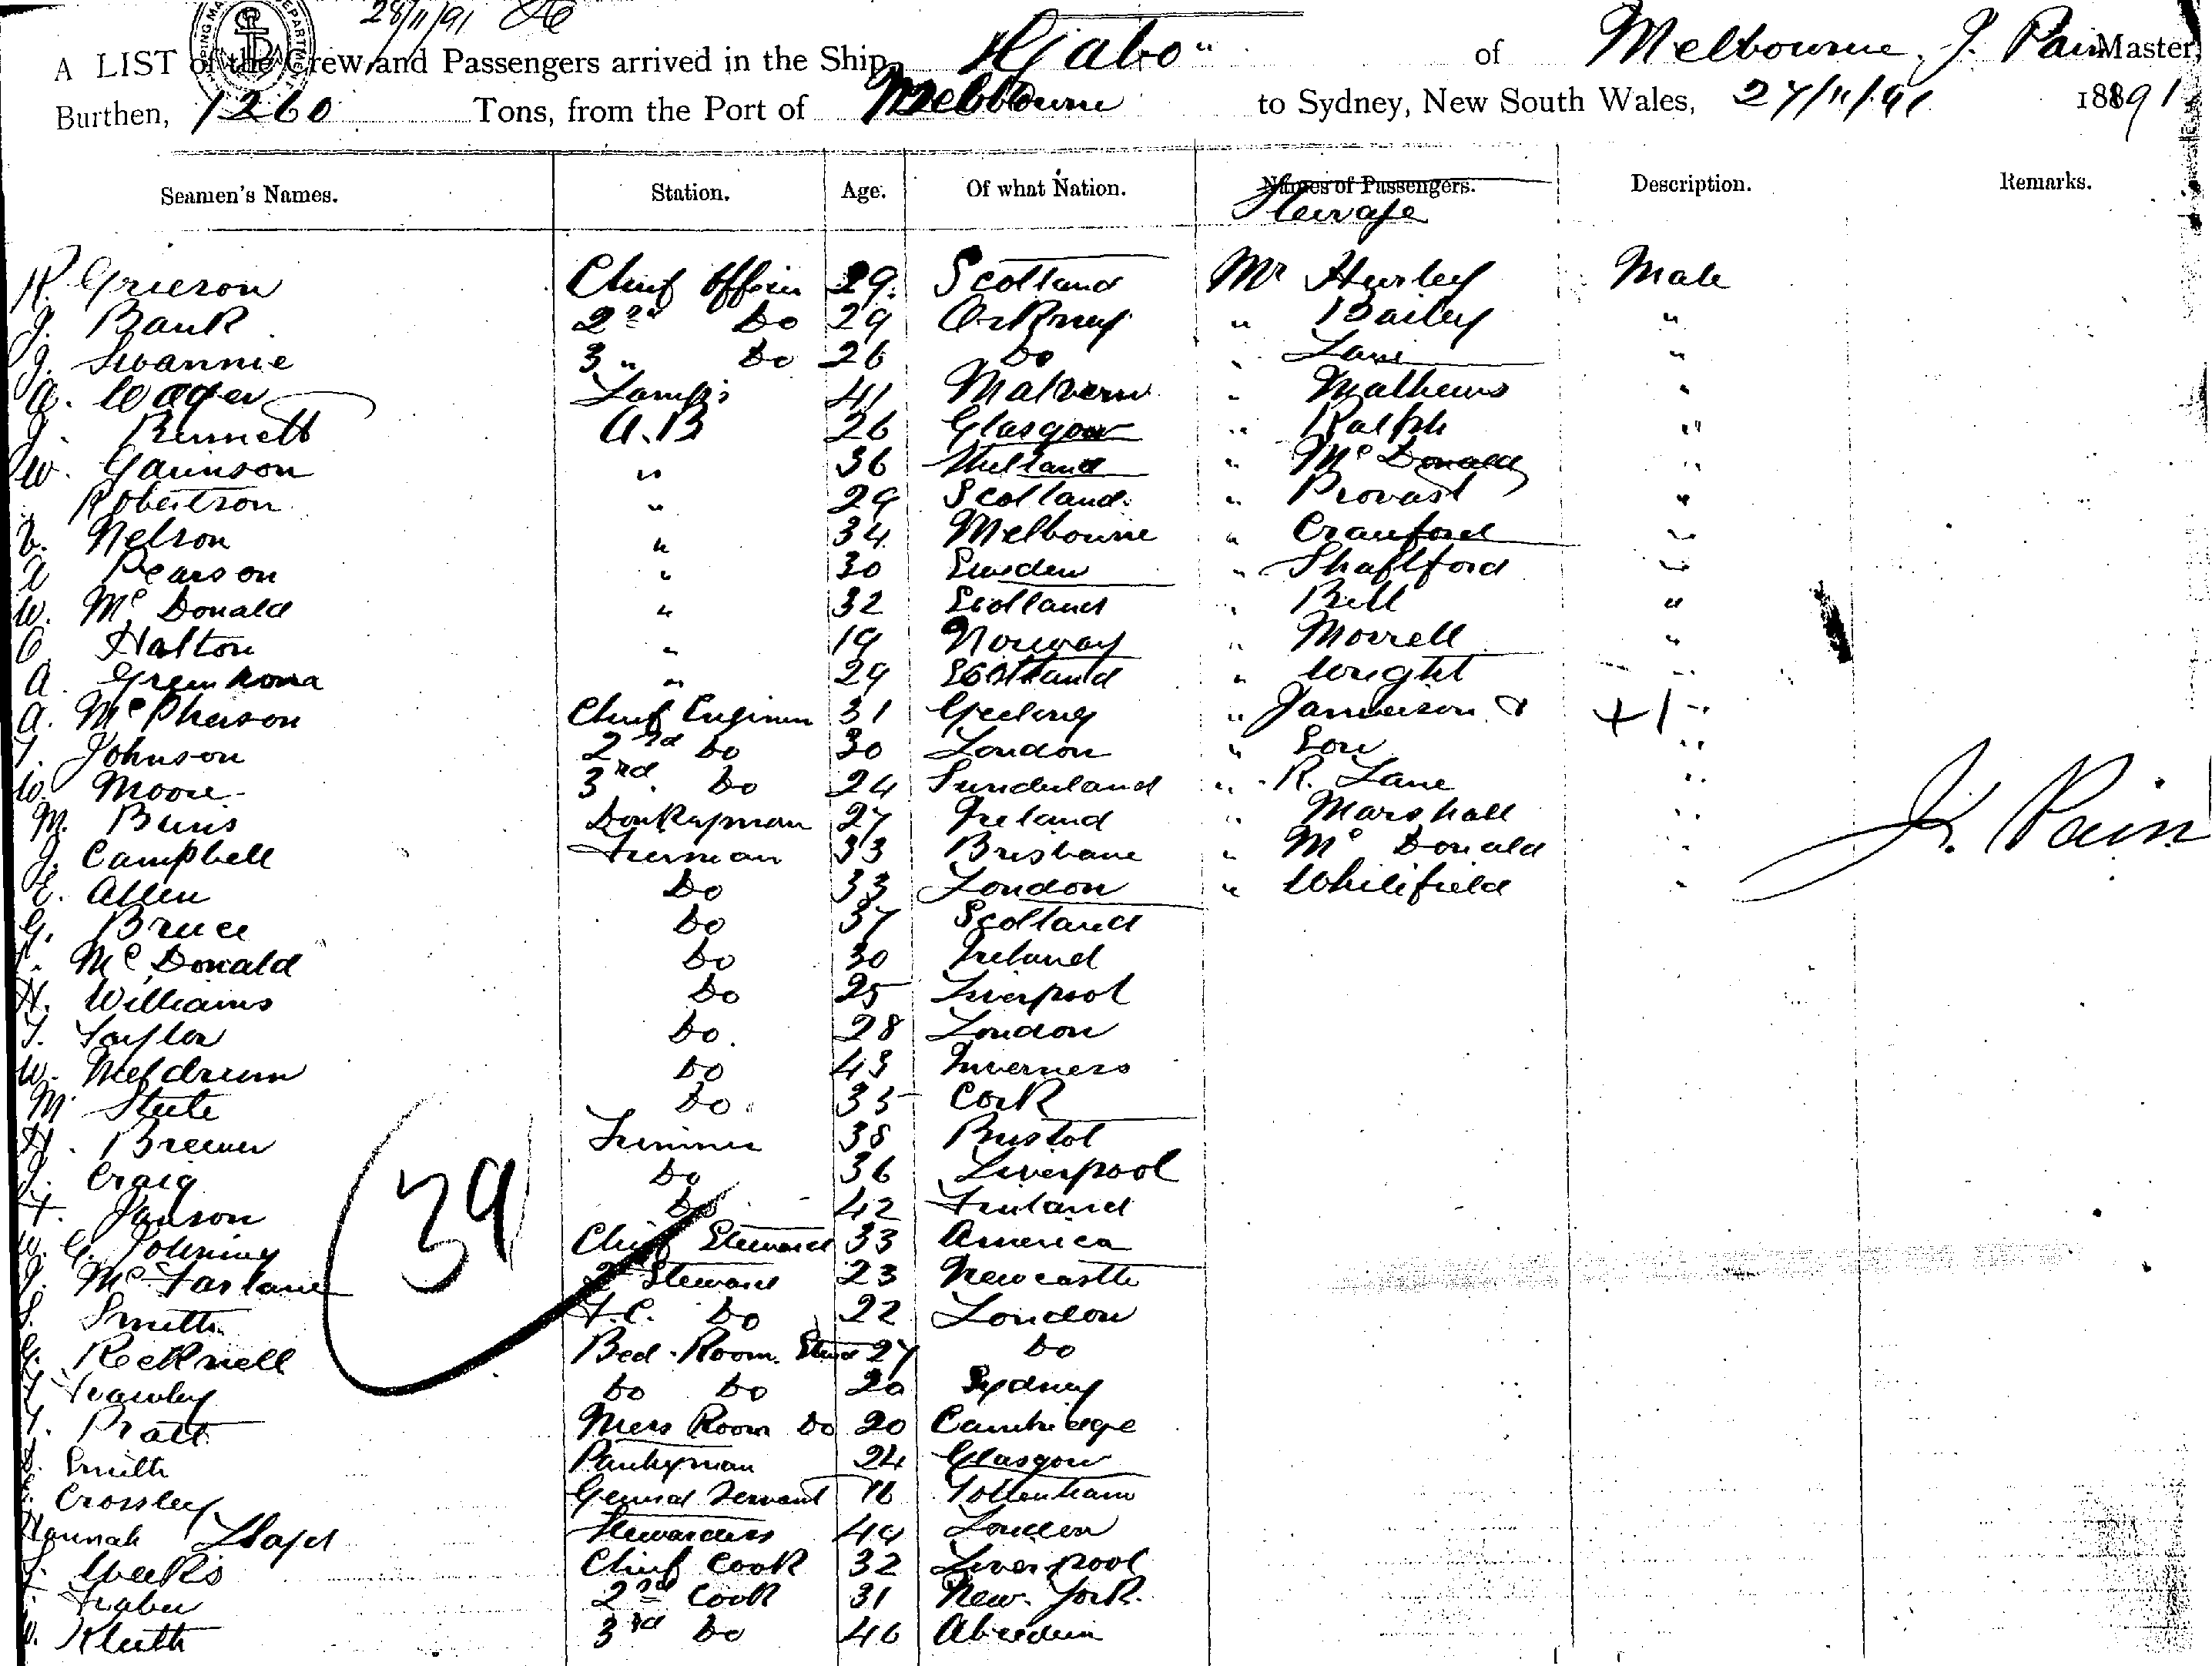 28/11/91
A LIST of the Crew and Passengers arrived in the Ship of Melbourne, J. Pain Master,
Burthen, 1260 Tons, from the Port of Melbourne to Sydney, New South Wales, 27/11/91 1891
Seamen's Names. Station. Age. Of what Nation. Names of Passengers. Description. Remarks.
Steerage
R. Grierson Chief Officer 29 Scotland Mr Hurley Male
J. Bank 2nd Do 29 Orkney " Bailey "
J. Swannie 3 " Do 26 Do " Lane "
A. Lamps 41 Malvern " Mathews "
J. Bennett A.B 26 Glasgow " Ralph "
W. Gaunson " 36 Shetland " Mc Donald "
Robertson " 29 Scotland " Provast "
Nelson " 34 Melbourne " Cranford "
Pearson " 30 Sweden " Shaftford "
W. Mc Donald " 32 Scotland " Bell "
Halton " 19 Norway " Morrell "
A. " 29 Scotland " Wright "
A. McPherson Chief Engineer 31 Geelong " Jameison & + 1 "
T. Johnson 2nd Do 30 London " Son "
W. Moore 3rd Do 24 Sunderland " R. Lane "
M. Burns Donkeyman 27 Ireland " Marshall "
J. Campbell Fireman 33 Brisbane " Mc Donald "
E. Allen Do 33 London " Whitfield "
J. Pain
G. Bruce Do 37 Scotland
Mc Donald Do 30 Ireland
H. Williams Do 25 Liverpool
T. Taylor Do 28 London
W. Meldrum Do 43 Inverness
M Do 35 Cork
H. Brewer Trimmer 38 Bristol
J. Craig Do 36 Liverpool
F. Janson Do 42 Finland
39
W. G. Chief Steward 33 America
J. McFarlane 2 Steward 23 Newcastle
S. Smith F.C. Do 22 London
G. Recknell Bed-Room Stewd 27 Do
Do Do 20 Sydney
T. Pratt Mess Room Do 20 Cambridge
Smith Pantryman 24 Glasgow
Crossley General Servant 16 Tottenham
Hannah Lloyd Stewardess 49 London
J. Weeks Chief Cook 32 Liverpool
2nd Cook 31 New York
3rd Do 46 Aberdeen